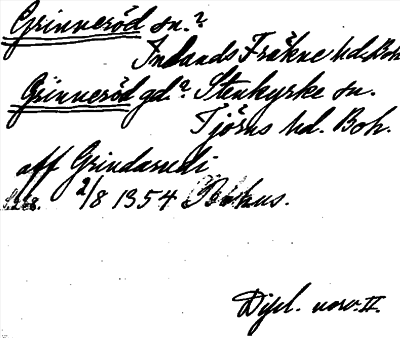 Grinneröd sn.?
Inlands Fräkne hd. Boh.
Grinneröd gd? Stenkyrke sn.
Tjörns hd. Boh.
aff Grindarudi
s. 228. 2/8 1354 Bohus.
Dipl. norv. II.